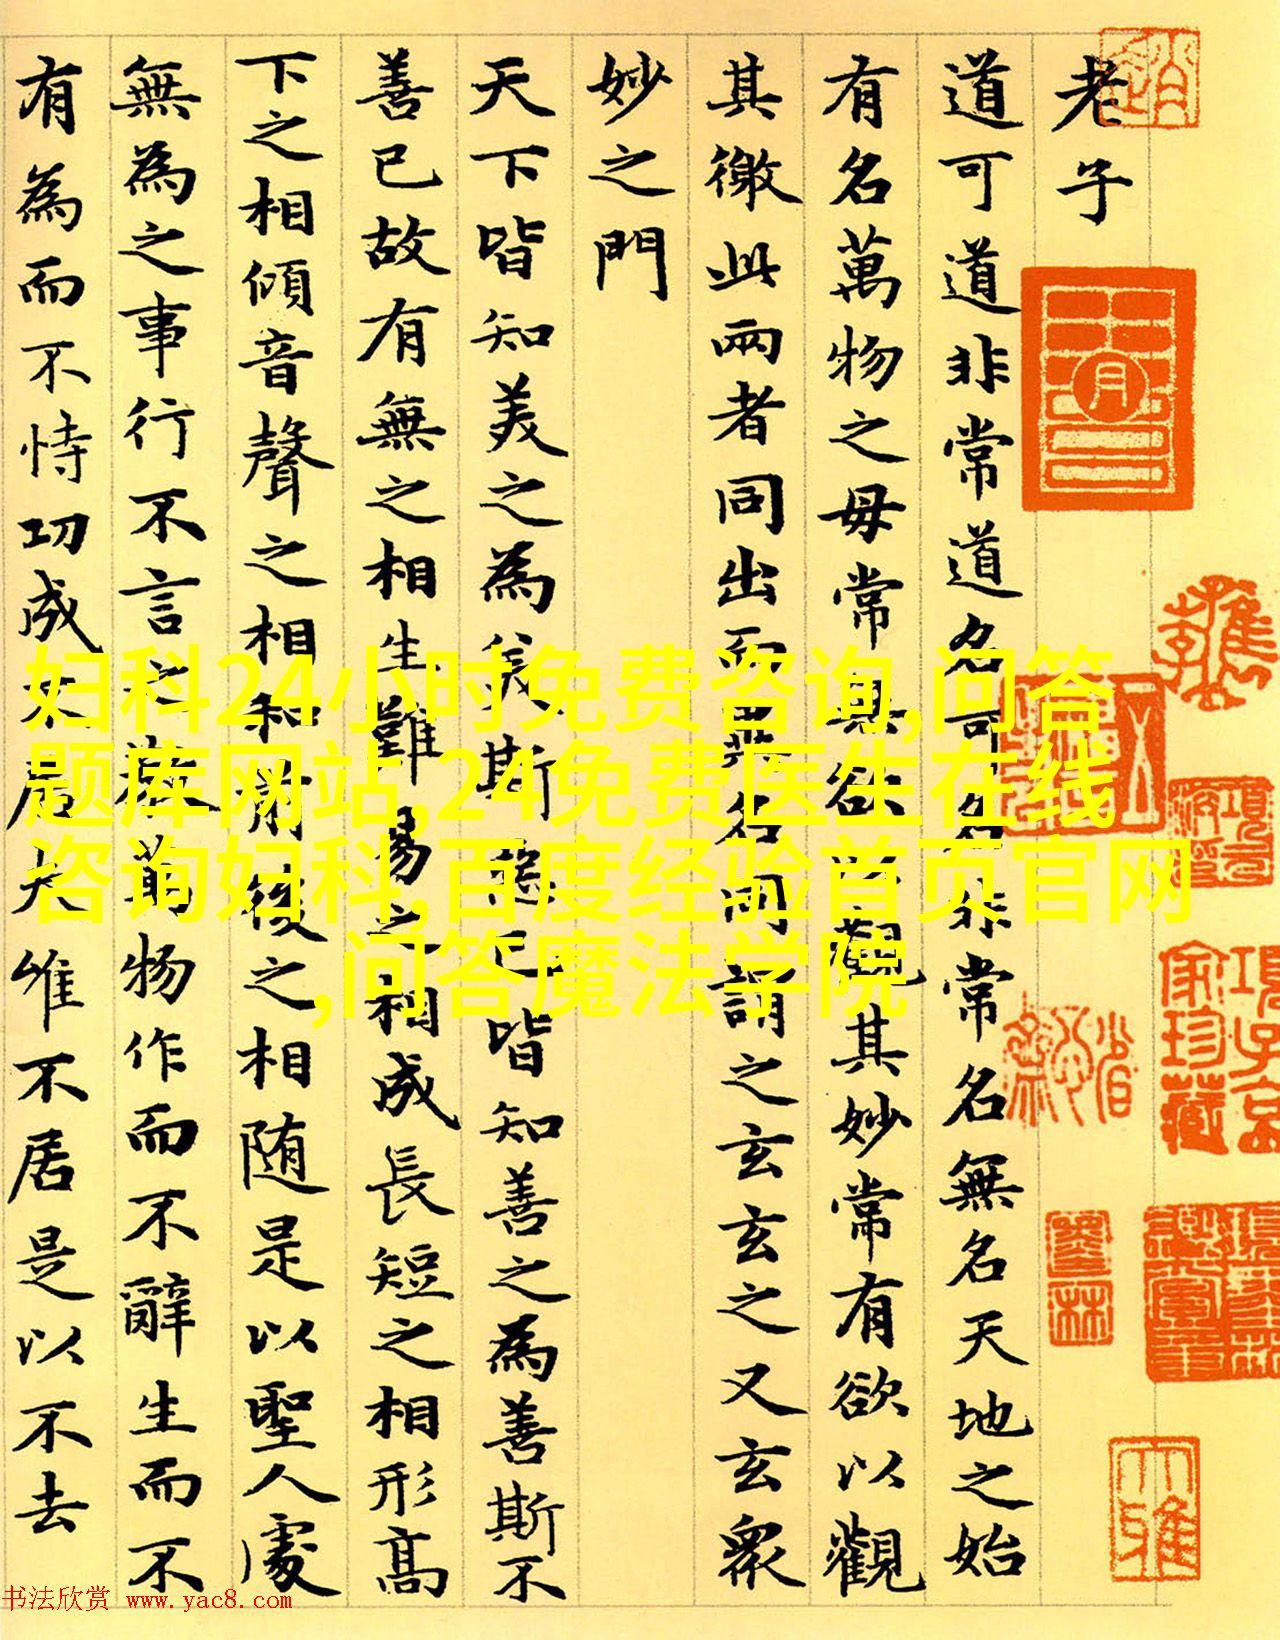 老子
道可道非常道名可名非常名無名天地之始
有名萬物之母常無欲以觀其妙常有欲以觀
其徼此兩者同出而異名同謂之玄玄之又玄眾
妙之門
天下皆知美之為美斯惡已皆知善之為善斯不
善已故有無之相生難易之相成長短之相形高
下之相傾音聲之相和前後之相随是以聖人處
無為之事行不言之教萬物作而不辭生而不
有為而不恃功成不居夫唯不居是以不去
妇科24小时免费咨询,问答
题库网站,24免费医生在线
咨询妇科,百度经验首页官网
,问答魔法学院
大雅
书法欣赏 www.yac8.com